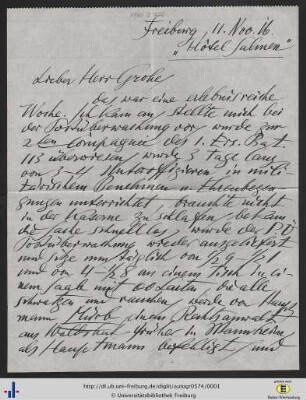 Freiburg, 11. Nov. 16
"Hôtel Salmen"
Lieber Herr Grohe
das war eine erlebnisreiche
Woche. Ich kam an, stellte mich bei
der Postüberwachung vor, wurde zur
2ten Compagnie des 1. Ers. Bat.
113 überwiesen, wurde 3 Tage lang
von 3-4 Unteroffizieren in mili-
tärischem Benehmen u. Ehrenbezeu-
gungen unterrichtet, brauchte nicht
in der Kaserne zu schlafen, bekam
die Sache schnell los, wurde der
Postüberwachung wieder ausgeliefert
und sitze nun täglich von
und von 4-½8 an einem Tisch in ei-
nem Saale mit 60 Leuten, die alle
schwatzen und rauchen, werde von Haupt-
mann einem Rechtsanwalt
aus Waldshut früher in Mannheim,
als Hauptmann befehligt und
http://dl.ub.uni-freiburg.de/diglit/autogr0574/0001
© Universitätsbibliothek Freiburg